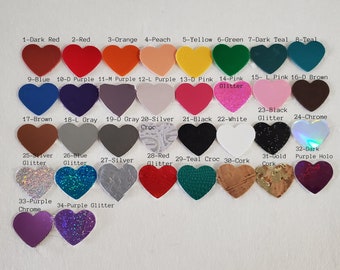 1-Dark Red 2-Red 3-Orange 4-Peach 5-Yellow 6-Green 7-Dark Teal 8-Teal
9-Blue 10-D Purple 11-M Purple 12-L Purple 13-D Pink 14-Pink Glitter 15- L Pink 16-D Brown
17-Brown 18-L Gray 19-D Gray 20-Silver Croc 21-Black 22-White 23-Black Glitter 24-Chrome
25-Silver Glitter 26-Blue Glitter 27-Silver 28-Red Glitter 29-Teal Croc 30-Cork 31-Gold Cork 32-Dark Purple Holo
33-Purple Chrome 34-Purple Glitter